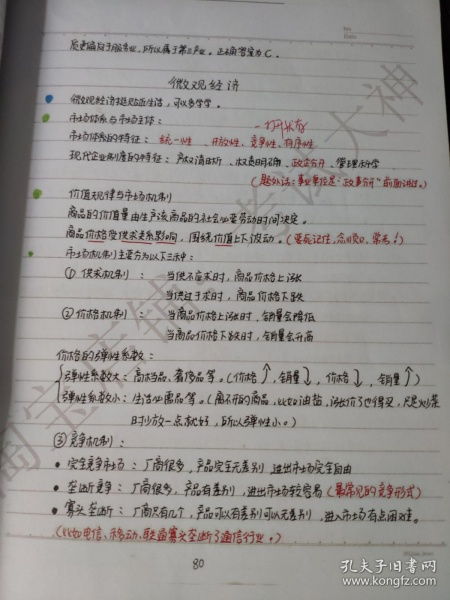 No.
Date
质更偏及于服务业,所以属于第三产业。正确答案为C。
微观经济
微观经济挺贴近生活,可以多学学。
市场体系与市场主体:
市场体系的特征:统一性、开放性、竞争性、有序性
现代企业制度的特征:产权清晰、权责明确、政企分开、管理科学
(题外话:事业单位是“政事分开”前面讲过。)
价值规律与市场机制
商品的价值量由生产该商品的社会必要劳动时间决定。
商品价格受供求关系影响,围绕价值上下波动。(要死记住,会默,常考!)
市场机制主要分为以下三种:
① 供求机制: 当供不应求时,商品价格上涨
当供过于求时,商品价格下跌
② 价格机制: 当商品价格上涨时,销量会降低
当商品价格下跌时,销量会升高
价格的弹性系数:
弹性系数大:高档品、奢侈品等。(价格↑,销量↓,价格↓,销量↑)
弹性系数小:生活必需品等。(离不开的商品,比如油盐,涨价了也得买,只是炒菜
时少放一点就好,所以弹性小。)
③ 竞争机制:
• 完全竞争市场:厂商很多,产品完全无差别,进出市场完全自由
• 垄断竞争:厂商很多,产品有差别,进出市场较容易(最常见的竞争形式)
• 寡头垄断:厂商只有几个,产品可以有差别可以无差别,进入市场有点困难。
(比如电信、移动、联通寡头垄断了通信行业。)
80
淘宝店铺:考试大神
孔夫子旧书网
www.kongfz.com